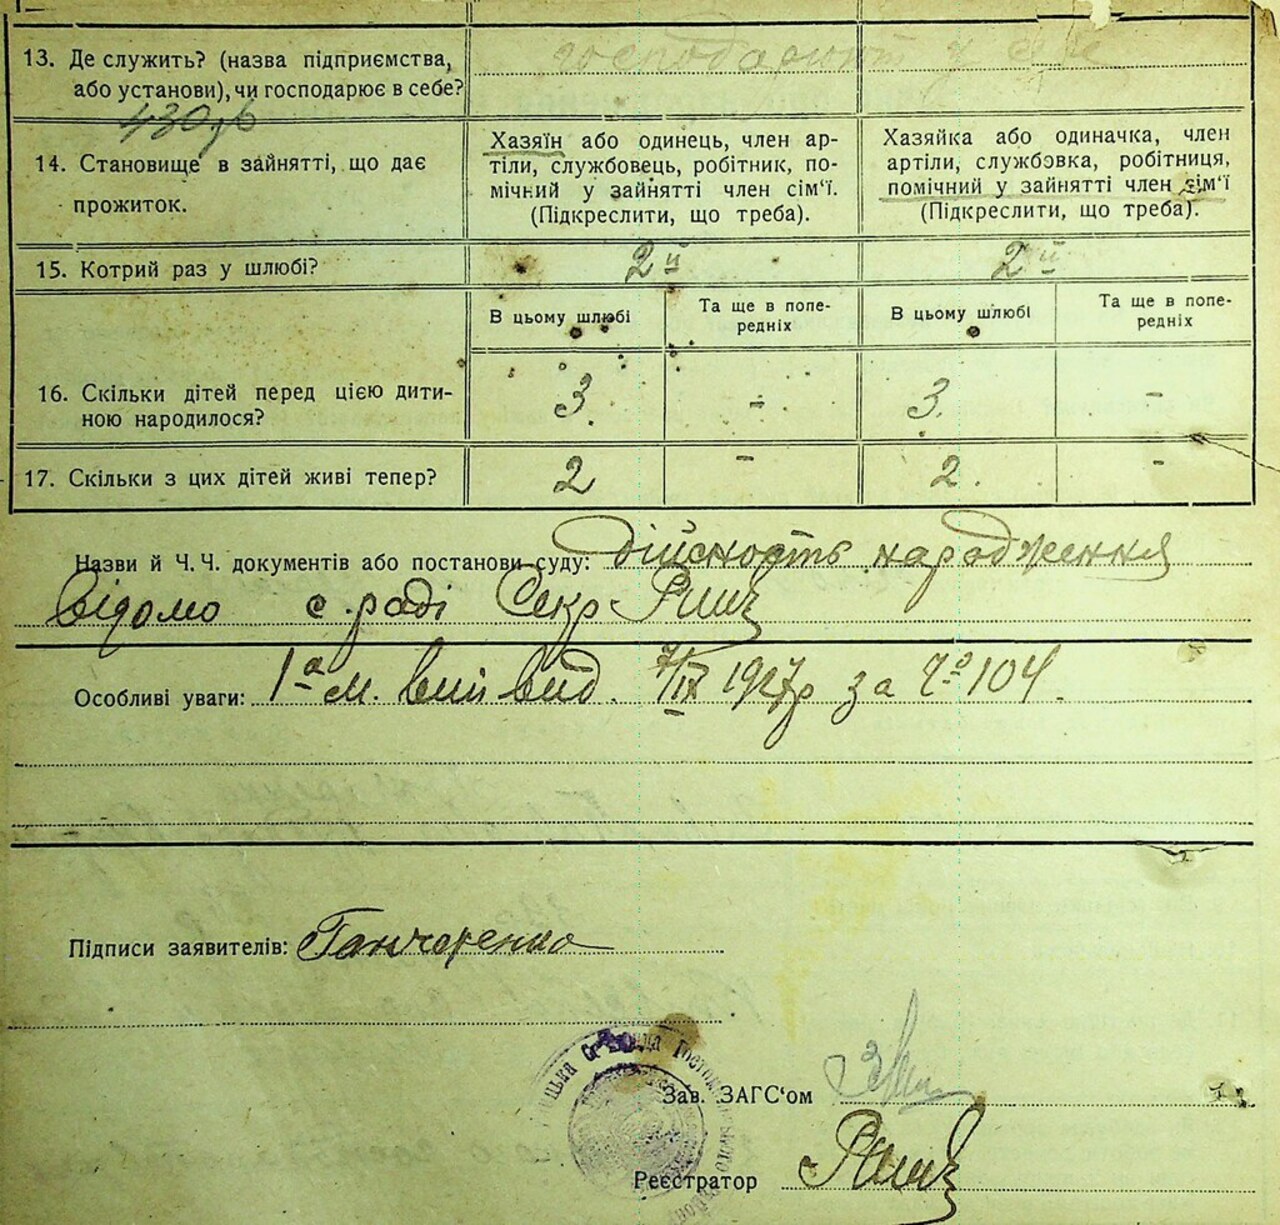 13. Де служить? (назва підприємства,
або установи), чи господарює в себе?
господарюют у себе
14. Становище в зайнятті, що дає
прожиток.
Хазяїн або одинець, член ар-
тіли, службовець, робітник, по-
мічний у зайнятті член сім'ї.
(Підкреслити, що треба).
Хазяйка або одиначка, член
артіли, службовка, робітниця,
помічний у зайнятті член сім'ї
(Підкреслити, що треба).
15. Котрий раз у шлюбі?
2й
2й
В цьому шлюбі
Та ще в попе-
редніх
В цьому шлюбі
Та ще в попе-
редніх
16. Скільки дітей перед цією дити-
ною народилося?
3. - 3. -
17. Скільки з цих дітей живі тепер?
2 - 2. -
Назви й Ч. Ч. документів або постанови суду: дійсность народження
відомо с. раді Секр
Особливі уваги: 1а м. вип вид. 7/IX 1927р за Чо 104.
Підписи заявителів: Ганчаренко
Зав. ЗАГС'ом
Реєстратор